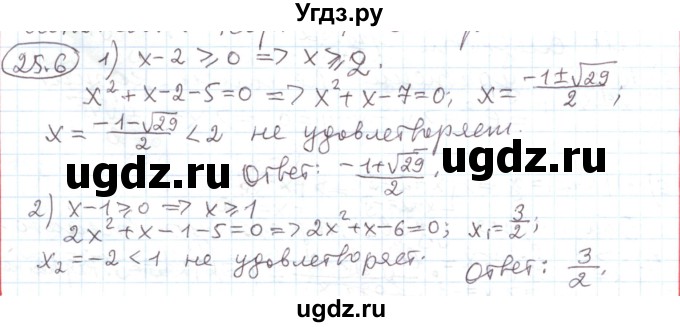 Угдз.ру
25.6 1) x-2 ⩾ 0 => x ⩾ 2.
x²+x-2-5=0 => x²+x-7=0; x = (-1±√29)/2;
x = (-1-√29)/2 < 2 не удовлетворяет.
ugdz.ru ugdz.ru
Ответ: (-1+√29)/2.
2) x-1⩾0 => x⩾1
2x²+x-1-5=0 => 2x²+x-6=0; x₁=3/2;
x₂=-2<1 не удовлетворяет.
Ответ: 3/2.
ugdz.ru ugdz.ru
ugdz.ru